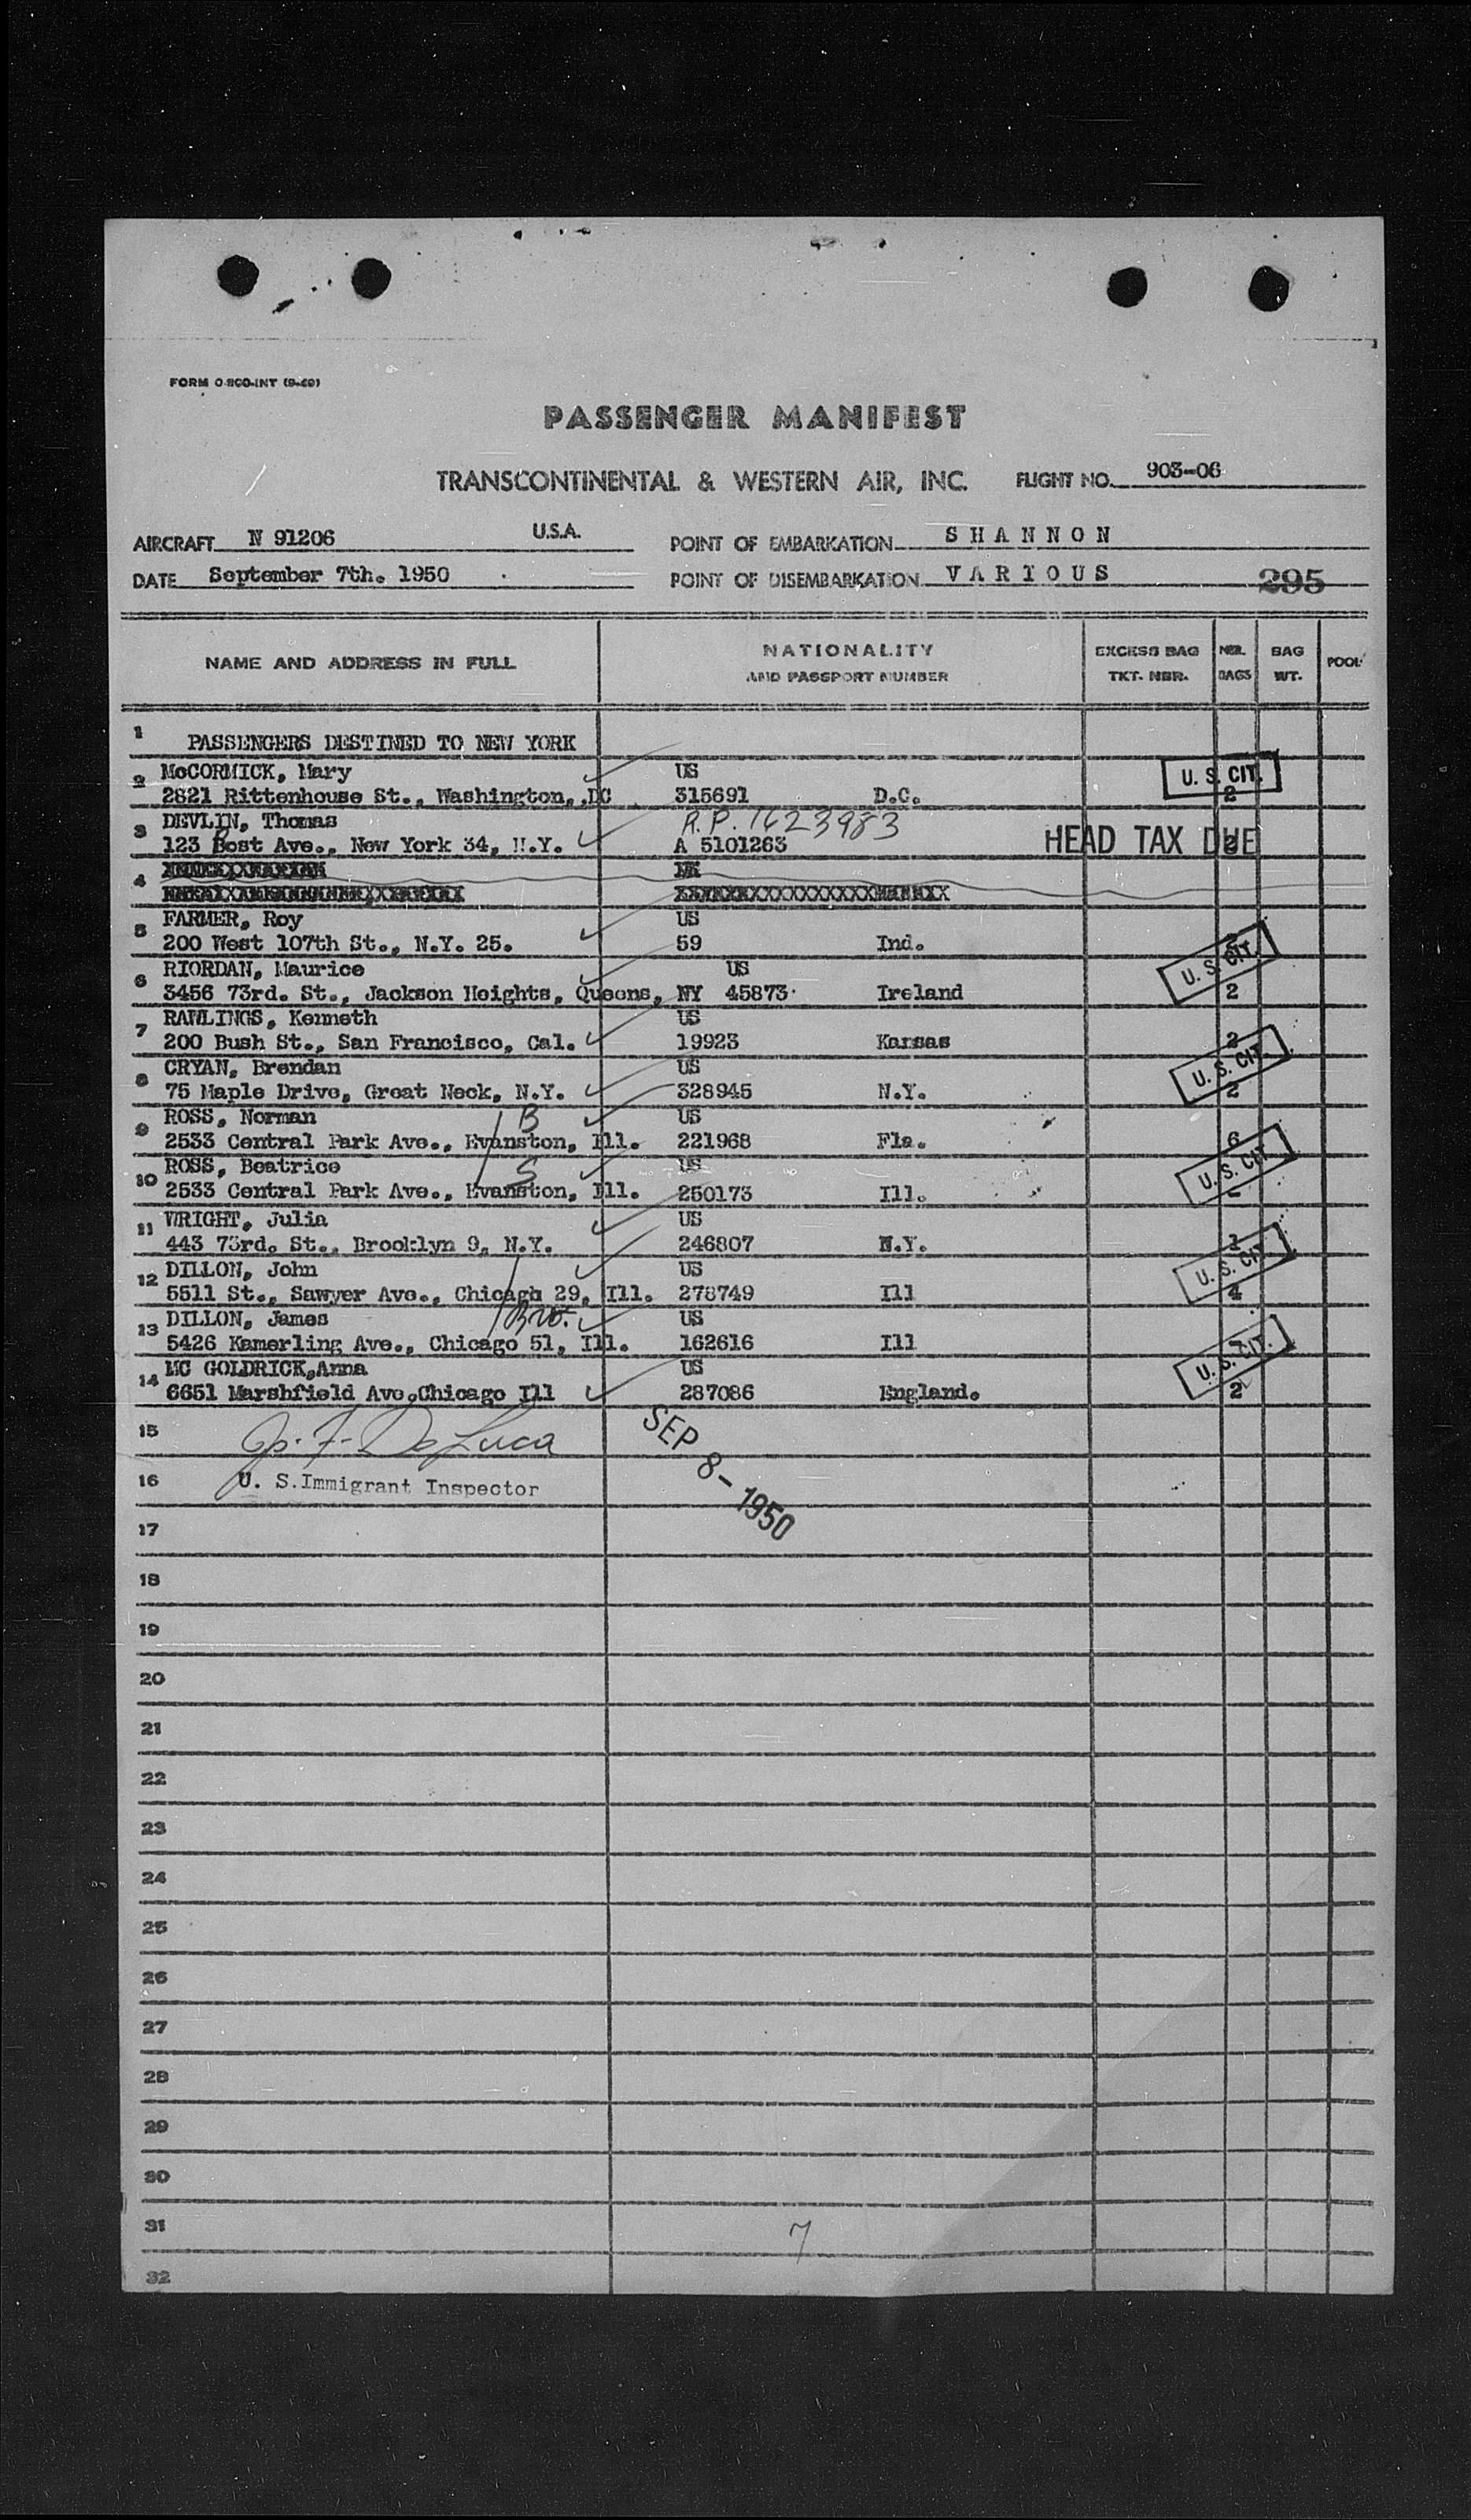 FORM O-800-INT (9-49)
PASSENGER MANIFEST
TRANSCONTINENTAL & WESTERN AIR, INC. FLIGHT NO. 903-06
AIRCRAFT N 91206 U.S.A. POINT OF EMBARKATION SHANNON
DATE September 7th. 1950 POINT OF DISEMBARKATION VARIOUS 295
NAME AND ADDRESS IN FULL NATIONALITY AND PASSPORT NUMBER EXCESS BAG TKT. NBR. NBR. BAGS BAG WT. POOL
1 PASSENGERS DESTINED TO NEW YORK
2 McCORMICK, Mary US U. S. CIT.
2821 Rittenhouse St., Washington, .DC 315691 D.C. 2
3 DEVLIN, Thomas R.P. 1623983
123 Post Ave., New York 34, N.Y. A 5101263 HEAD TAX DUE
4
5 FARMER, Roy US
200 West 107th St., N.Y. 25. 59 Ind. U. S. CIT.
6 RIORDAN, Maurice US
3456 73rd. St., Jackson Heights, Queens, NY 45873 Ireland 2
7 RAWLINGS, Kenneth US
200 Bush St., San Francisco, Cal. 19923 Kansas 2
8 CRYAN, Brendan US U. S. CIT.
75 Maple Drive, Great Neck, N.Y. 328945 N.Y. 2
9 ROSS, Norman B US
2533 Central Park Ave., Evanston, Ill. 221968 Fla. 6
10 ROSS, Beatrice S US U. S. CIT.
2533 Central Park Ave., Evanston, Ill. 250173 Ill. -
11 WRIGHT, Julia US
443 73rd. St., Brooklyn 9, N.Y. 246807 N.Y. 1
12 DILLON, John US U. S. CIT.
5511 St., Sawyer Ave., Chicagh 29, Ill. 278749 Ill 4
13 DILLON, James Bro. US
5426 Kamerling Ave., Chicago 51, Ill. 162616 Ill
14 MC GOLDRICK,Anna US U. S. CIT.
6651 Marshfield Ave,Chicago Ill 287086 England. 2
15 Jos. F. De Luca SEP 8- 1950
16 U. S.Immigrant Inspector
17
18
19
20
21
22
23
24
25
26
27
28
29
30
31 7
32